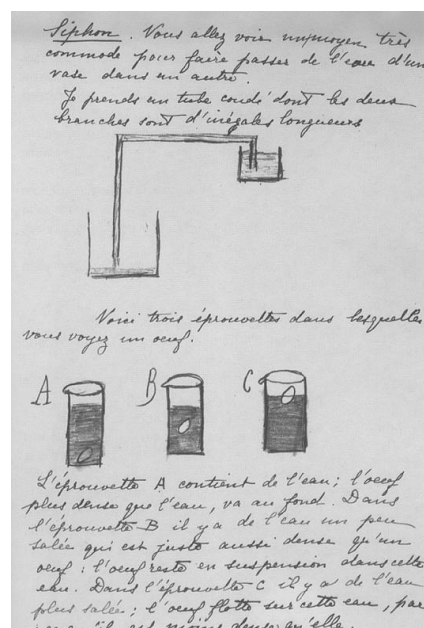 Siphon. Vous allez voir un moyen très
commode pour faire passer de l'eau d'un
vase dans un autre.
Je prends un tube coudé dont les deux
branches sont d'inégales longueurs
Voici trois éprouvettes dans lesquelles
vous voyez un oeuf.
A B C
L'éprouvette A contient de l'eau ; l'oeuf
plus dense que l'eau, va au fond. Dans
l'éprouvette B il y a de l'eau un peu
salée qui est juste aussi dense qu'un
oeuf : l'oeuf reste en suspension dans cette
eau. Dans l'éprouvette C il y a de l'eau
plus salée ; l'oeuf flotte sur cette eau, par
qu'il est moins dense qu'elle.